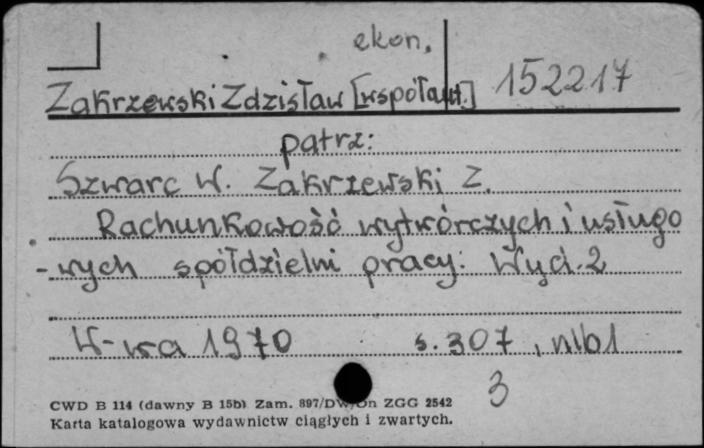 ekon.
Zakrzewski Zdzisław [współaut.] 152217
patrz:
Szwarc W. Zakrzewski Z.
Rachunkowość wytwórczych i usługo
-wych spółdzielni pracy. Wyd. 2
W-wa 1970 s. 307, nlb1
3
CWD B 114 (dawny B 15b) Zam. 897/DW/Dn ZGG 2542
Karta katalogowa wydawnictw ciągłych i zwartych.